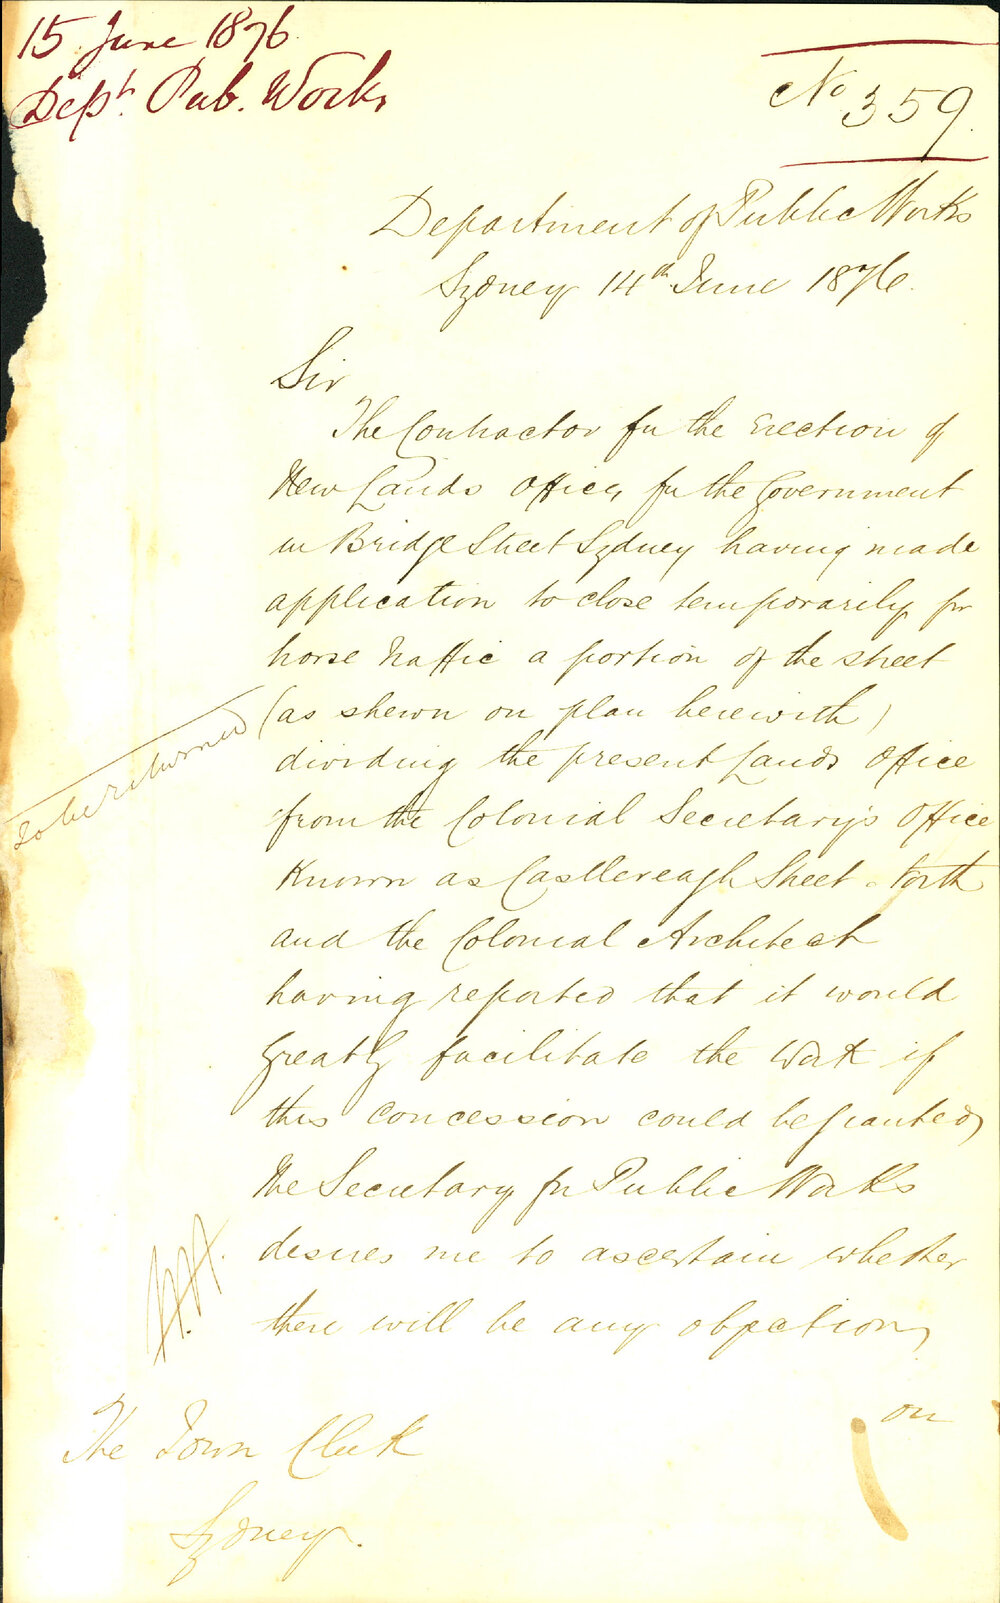 15 June 1876
Dept. Pub. Works
No 359.
Department of Public Works
Sydney 14th June 1876.
Sir
The Contractor for the Erection of
New Lands Offices for the Government
in Bridge Street Sydney having made
application to close temporarily for
horse traffic a portion of the street
(as shewn on plan herewith)
to be returned
dividing the present Lands Office
from the Colonial Secretary's Office
known as Castlereagh Street North
and the Colonial Architect
having reported that it would
greatly facilitate the work if
this concession could be granted,
the Secretary for Public Works
desires me to ascertain whether
there will be any objection,
on
The Town Clerk
Sydney.